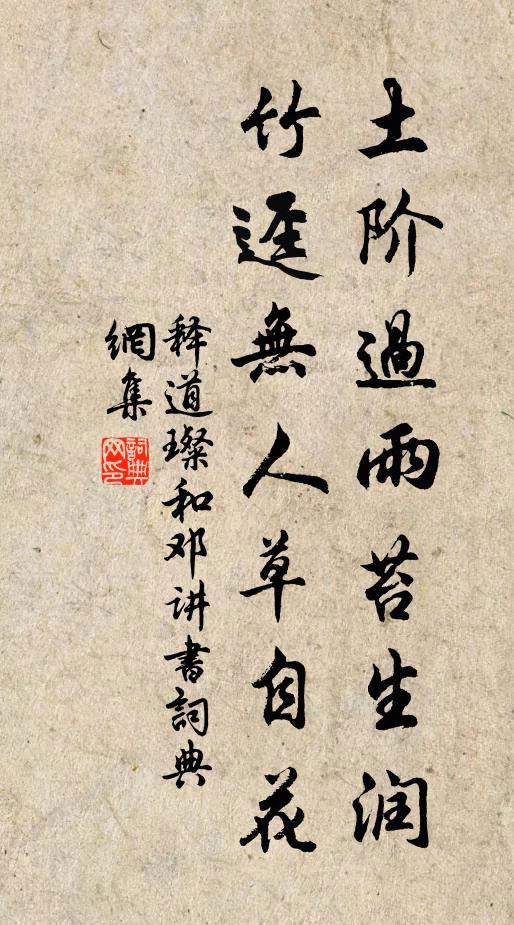 土阶過雨苔生润
竹逕無人草自花
释道璨和邓讲書詞典
網集
詞典
网印